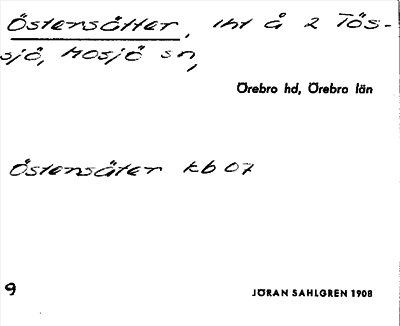 Östersätter, lht å 2 Tös-
sjö, Mosjö sn,
Örebro hd, Örebro län
Östensäter kb 07
9
JÖRAN SAHLGREN 1908